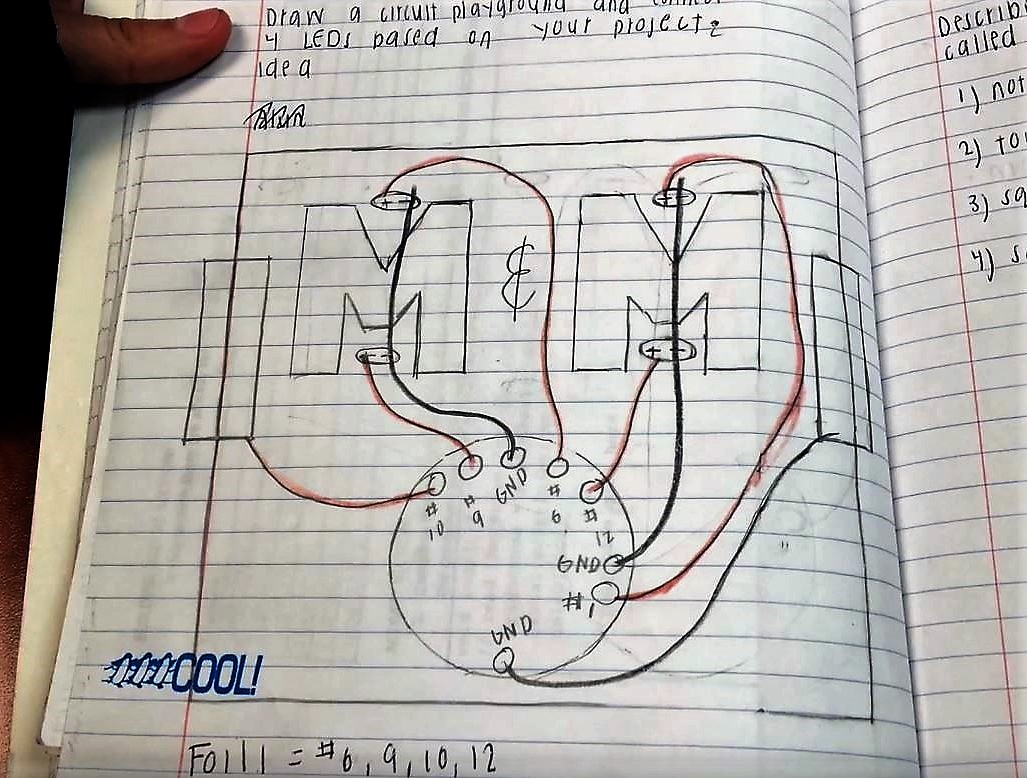 Draw a circuit playground and connect
4 LEDs based on your project
idea
Describ
called
1) not
2) to
3) sq
4) s
&
#10
#9
GND
#6
#12
GND
#1
GND
COOL!
Foill = #6, 9, 10, 12